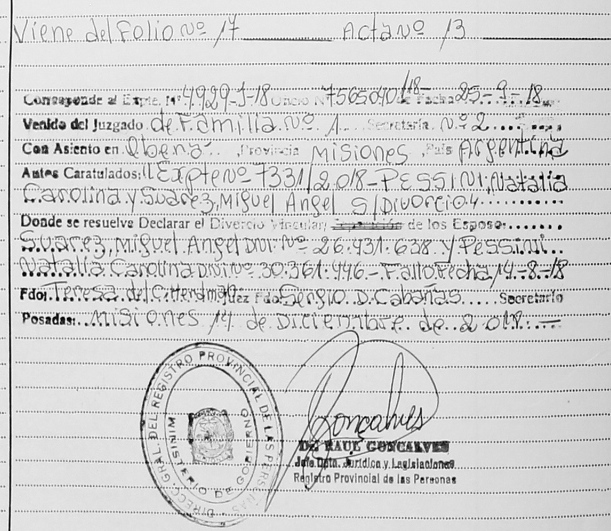 Viene del Folio Nº 17 Acta Nº 13
Corresponde al Expte. Nº 4929-J-18 Oficio Nº 7565040/18- de Fecha 25.-9.-18.
Venido del Juzgado de Familia Nº 1 Secretaría Nº 2
Con Asiento en Oberá Provincia Misiones País Argentina
Autos Caratulados: "Expte Nº 7331/2018-PESSINI, Natalia
Carolina y Suarez, Miguel Angel S/Divorcio
Donde se resuelve Declarar el Divorcio Vincular de los Esposos
Suarez, Miguel Angel DNI Nº 26.431.638 y Pessini
Natalia Carolina DNI Nº 30.361.446.- Fallo Fecha 14-8-18
Fdo: Teresa del C. Juez Fdo Sergio D. Cabañas Secretario
Posadas: Misiones 14 de Diciembre de 2018.-
DIRECC. GRAL. DEL REGISTRO PROVINCIAL DE LAS PERSONAS
MINISTERIO DE GOBIERNO
Goncalves
DR RAUL GONCALVES
Jefe Dpto. Jurídico y Legislaciones
Registro Provincial de las Personas